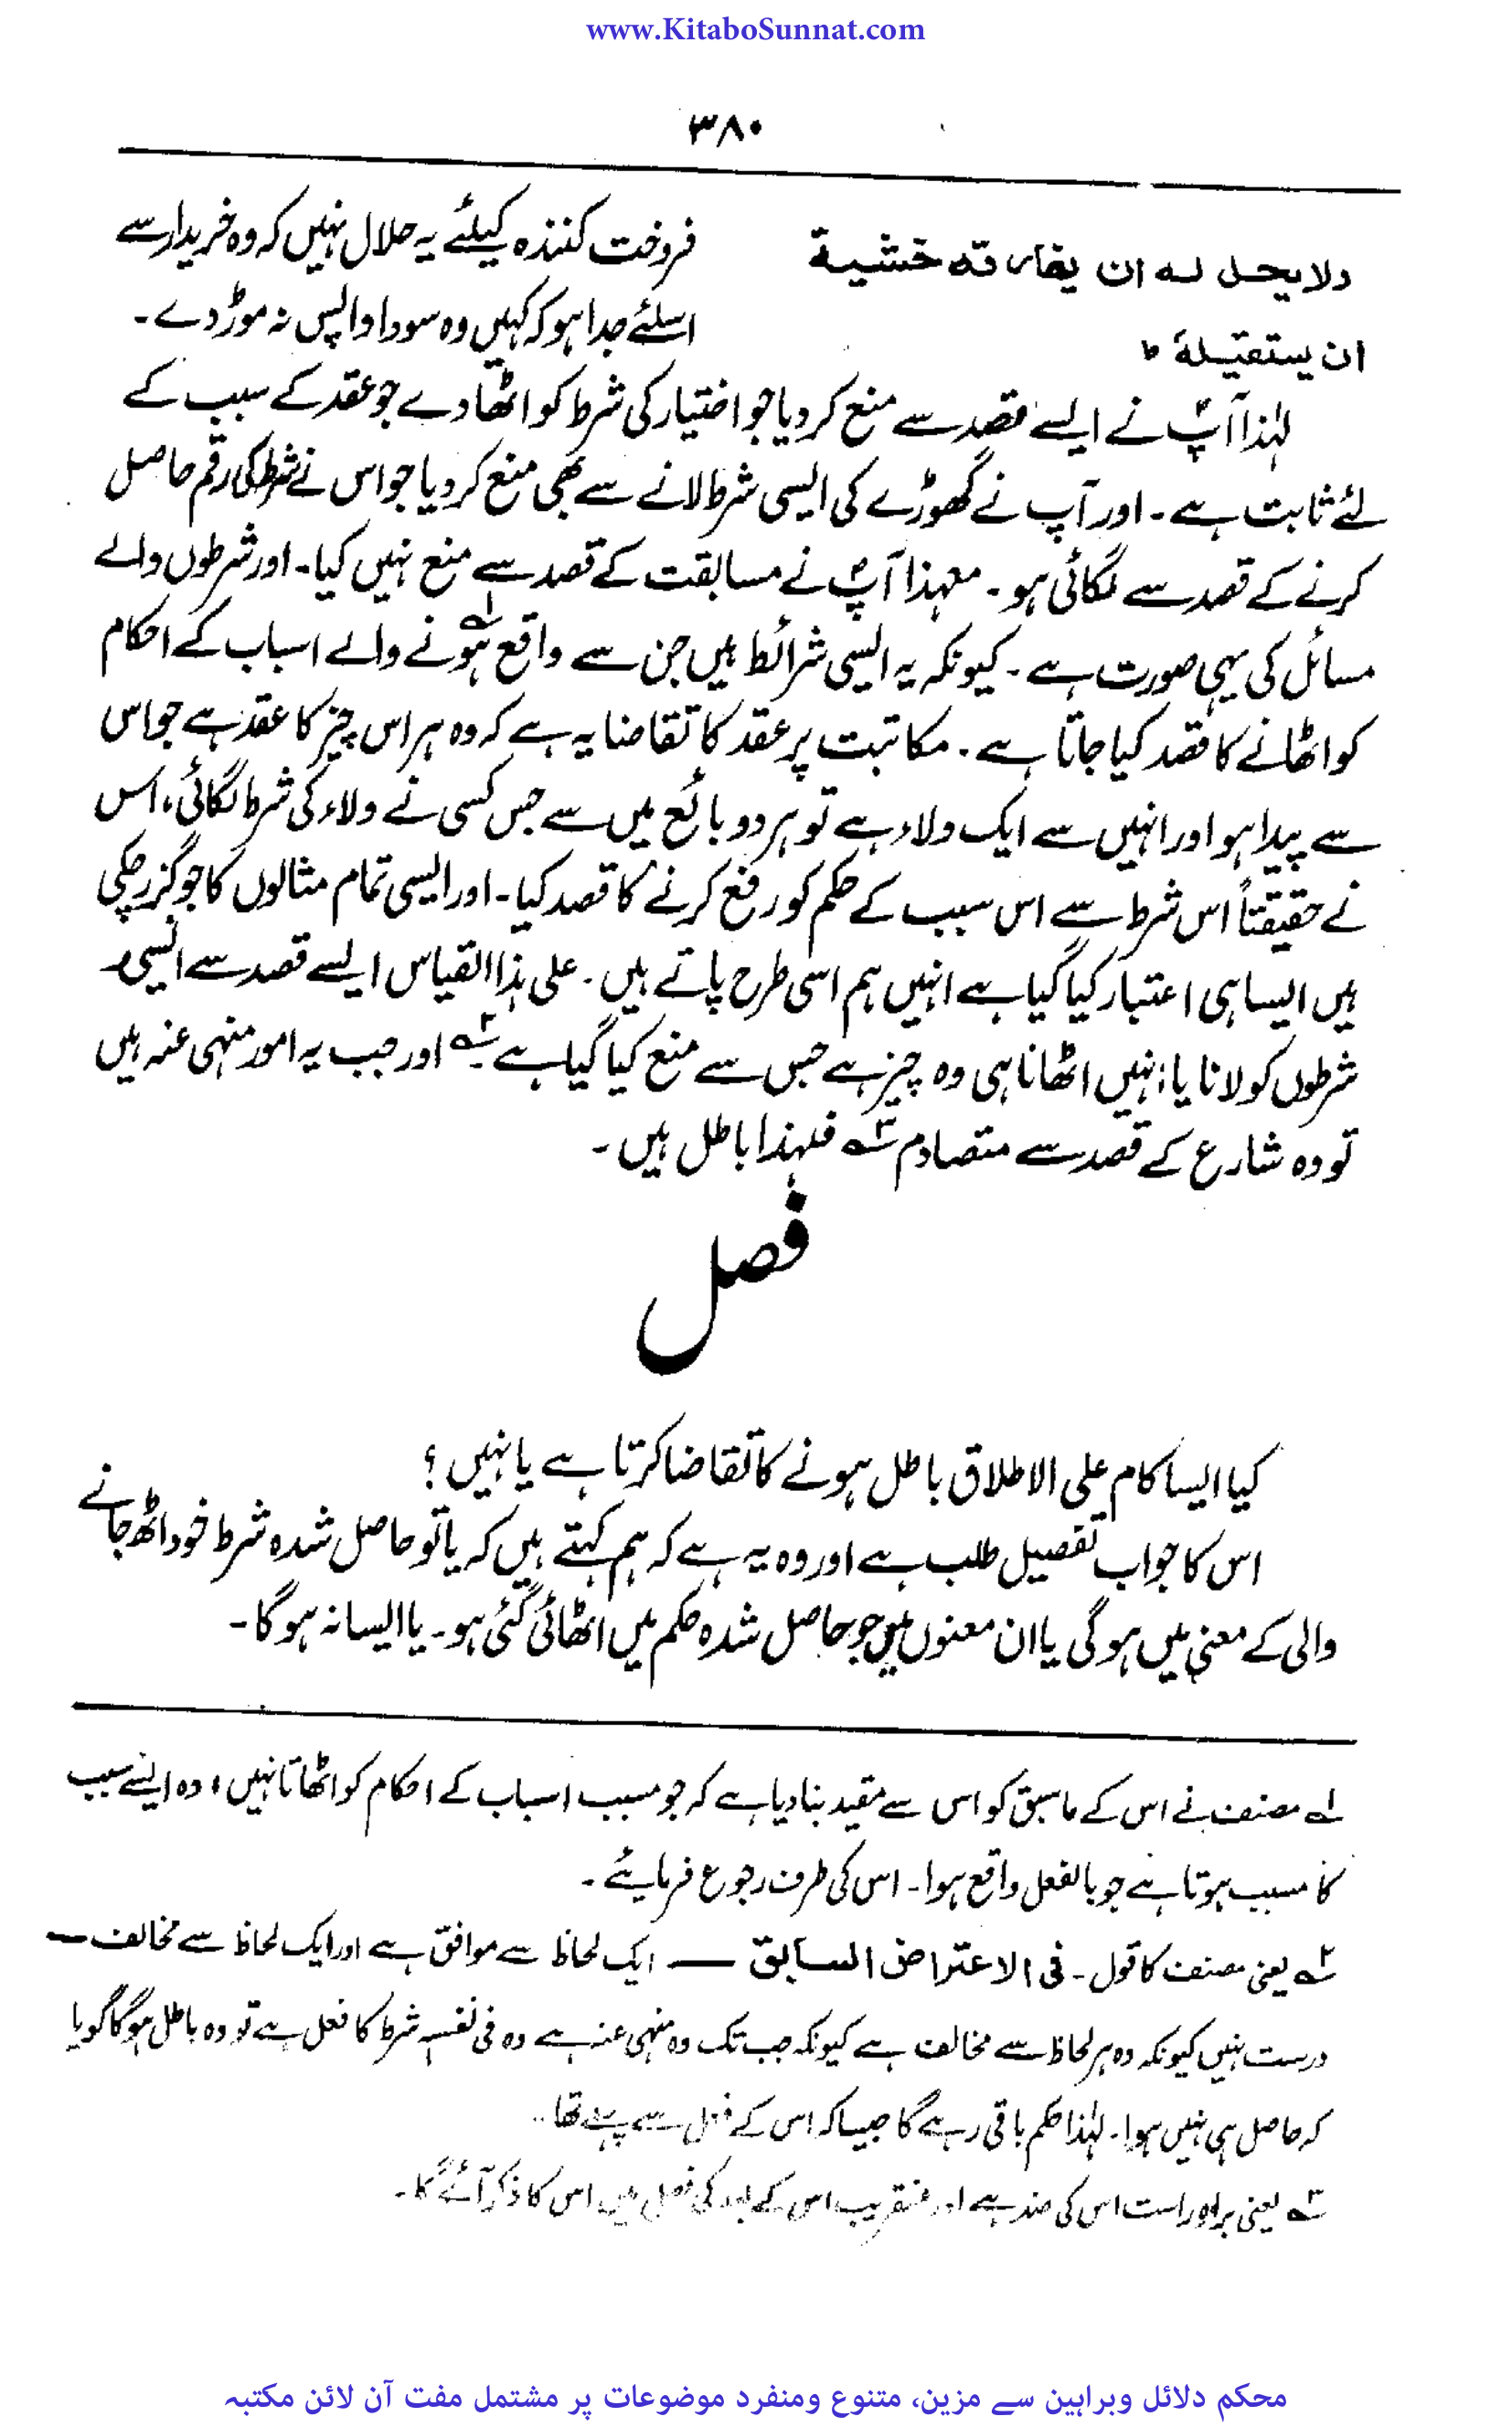 www.KitaboSunnat.com
۳۸۰
ولا یحل لہ ان یفارقہ خشیۃ
ان یستقیلہٗ ط
فروخت کنندہ کیلئے یہ حلال نہیں کہ وہ خریدار سے
اسلئے جدا ہو کہ کہیں وہ سودا واپس نہ موڑ دے۔
لہٰذا آپؐ نے ایسے قصد سے منع کر دیا جو اختیار کی شرط کو اٹھا دے جو عقد کے سبب کے
لئے ثابت ہے۔ اور آپ نے گھوڑے کی ایسی شرط لانے سے بھی منع کر دیا جو اس نے شرط کی رقم حاصل
کرنے کے قصد سے لگائی ہو۔ معہذا آپؐ نے مسابقت کے قصد سے منع نہیں کیا۔ اور شرطوں والے
مسائل کی یہی صورت ہے۔ کیونکہ یہ ایسی شرائط ہیں جن سے واقع ہونے ۱؎ والے اسباب کے احکام
کو اٹھانے کا قصد کیا جاتا ہے۔ مکاتبت پر عقد کا تقاضا یہ ہے کہ وہ ہر اس چیز کا عقد ہے جو اس
سے پیدا ہو اور انہیں سے ایک ولاء ہے تو ہر دو بائع میں سے جس کسی نے ولاء کی شرط لگائی، اس
نے حقیقتاً اس شرط سے اس سبب کے حکم کو رفع کرنے کا قصد کیا۔ اور ایسی تمام مثالوں کا جو گزر چکی
ہیں ایسا ہی اعتبار کیا گیا ہے انہیں ہم اسی طرح پاتے ہیں۔ علی ہذا القیاس ایسے قصد سے ایسی
شرطوں کو لانا یا انہیں اٹھانا ہی وہ چیز ہے جس سے منع کیا گیا ہے ۲؎ اور جب یہ امور منہی عنہ ہیں
تو وہ شارع کے قصد سے متصادم ۳؎ فلہذا باطل ہیں۔
فصل
کیا ایسا کام علی الاطلاق باطل ہونے کا تقاضا کرتا ہے یا نہیں؟
اس کا جواب تفصیل طلب ہے اور وہ یہ ہے کہ ہم کہتے ہیں کہ یا تو حاصل شدہ شرط خود اٹھ جانے
والی کے معنی میں ہوگی یا ان معنوں میں جو حاصل شدہ حکم میں اٹھائی گئی ہو۔ یا ایسا نہ ہوگا۔
۱؎ مصنف نے اس کے ماسبق کو اس سے مقید بنا دیا ہے کہ جو مسبب اسباب کے احکام کو اٹھاتا نہیں، وہ ایسے سبب
کا مسبب ہوتا ہے جو بالفعل واقع ہوا۔ اس کی طرف رجوع فرمایئے۔
۲؎ یعنی مصنف کا قول۔ فی الاعتراض السابق — ایک لحاظ سے موافق ہے اور ایک لحاظ سے مخالف —
درست نہیں کیونکہ وہ ہر لحاظ سے مخالف ہے کیونکہ جب تک وہ منہی عنہ ہے وہ فی نفسہٖ شرط کا فعل ہے تو وہ باطل ہوگا گویا
کہ حاصل ہی نہیں ہوا۔ لہٰذا حکم باقی رہے گا جیسا کہ اس کے فعل سے پہلے تھا۔
۳؎ یعنی براہ راست اس کی ضد ہے اور عنقریب اس کے بعد کی فصل میں اس کا ذکر آئے گا۔
محکم دلائل وبراہین سے مزین، متنوع ومنفرد موضوعات پر مشتمل مفت آن لائن مکتبہ